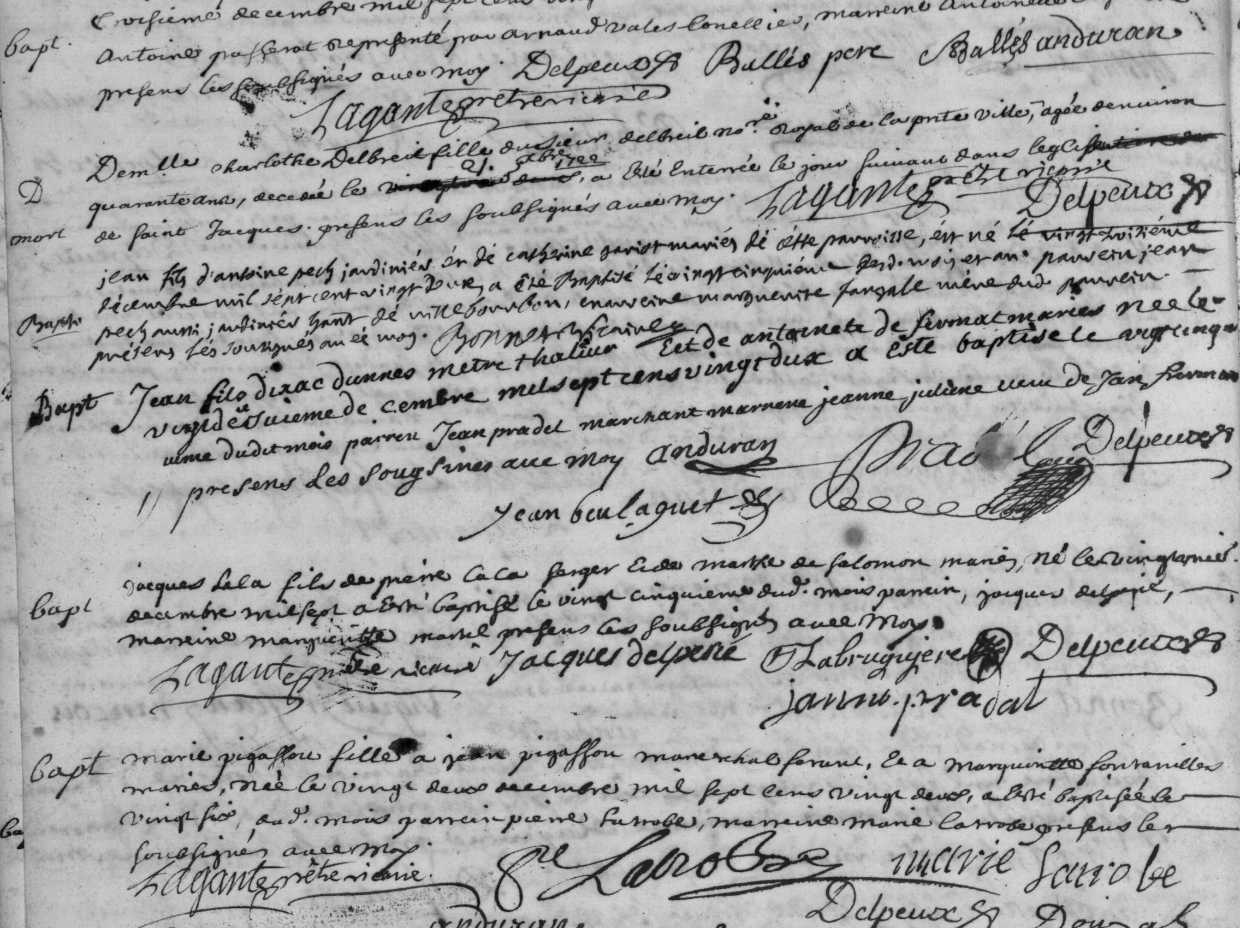 troisiéme decembre mil sept cens
bapt. Antoine passerat representé par arnaud vales tonellier, marreine Antoinette
presens les soubsignés avec moy. Delpeux Ballés pere Ballés anduran
Lagante prêtre vicaire
Dem.lle charlothe Delbreil fille du sieur delbreil no.re Royal de la pnte ville, agée denviron
D quarante ans, decedée le 21. xbre 1722, a esté Enterrée le jour suivant dans leglise
mort de saint Jacques. presens les soubsignés avec moy. Lagante prêtre vicaire Delpeux
jean fils d'antoine pech jardiniér ét dé catherine mariés dé cétte parroisse, ést né lé vingt troisiéme
décembre mil sépt cent vingt deux, a été Baptisé lé vingt cinquiéme desd. mois et an. parrein jean
Bapte pech aussi jardiniér hant dé villebourbon, marreine marguerite mére dud. parrein.
présens lés sousignés avéc moy. Bonnet vicaire
Bapt Jean fils disac dunnes metre thalieur Eet de antoinete de fermat maries ne le
vingt deusieme decembre mil sept cens vingt dux a este baptise le vigt cinqu
ieme dudit mois pairein Jean pradel marchant marnene jeanne juliene veuu de Jan
presens les sougsines avec moy anduran Pradel Delpeux
jean boulaguet
jacques Lala fils de pierre Lala Berger Et de marthe de salomon mariés, né le vingt
bapt decembre mil sept a Esté baptisé le vingt cinquieme dud. mois parrein, jacques delperié,
marreine margueritte martel presens les soubsignés avec moy.
Lagante prêtre vicaire Jacques delperié Labruguiere Delpeux
janno. pradal
bapt marie pigassou fille a jean pigassou marechal ferant, Et a marguerite fontanilles
mariés, née le vingt deux decembre mil sept cens vingt deux, a Esté baptisée le
vingt six, dud. mois parrein pierre Larrobe, marreine marie larrobe presens les
soubsignés avec moy.
Lagante prêtre vicaire. pre Larrobe marie Larrobe
anduran Delpeux